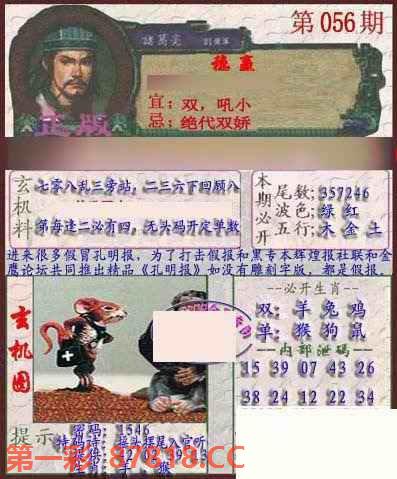 第056期
诸葛亮
稳赢
宜：双，吼小
忌：绝代双娇
正版
玄机料
七零八乱三旁站，二三六下回顾八
第每逢二必有四，无头码开定单数
本期必开
尾数;357246
波色;绿 红
五行;木 金 土
进来很多假冒孔明报，为了打击假报和黑专本辉煌报社联和金
鹰论坛共同推出精品《孔明报》如没有雕刻字版，都是假报。
玄机图
必开生肖
双: 羊 兔 鸡
单: 猴 狗 鼠
内部泄码
15 39 07 43 26
38 24 12 22 34
提示
密码：1546
特码诗：摇头摆尾入官听
第一彩 87818.CC